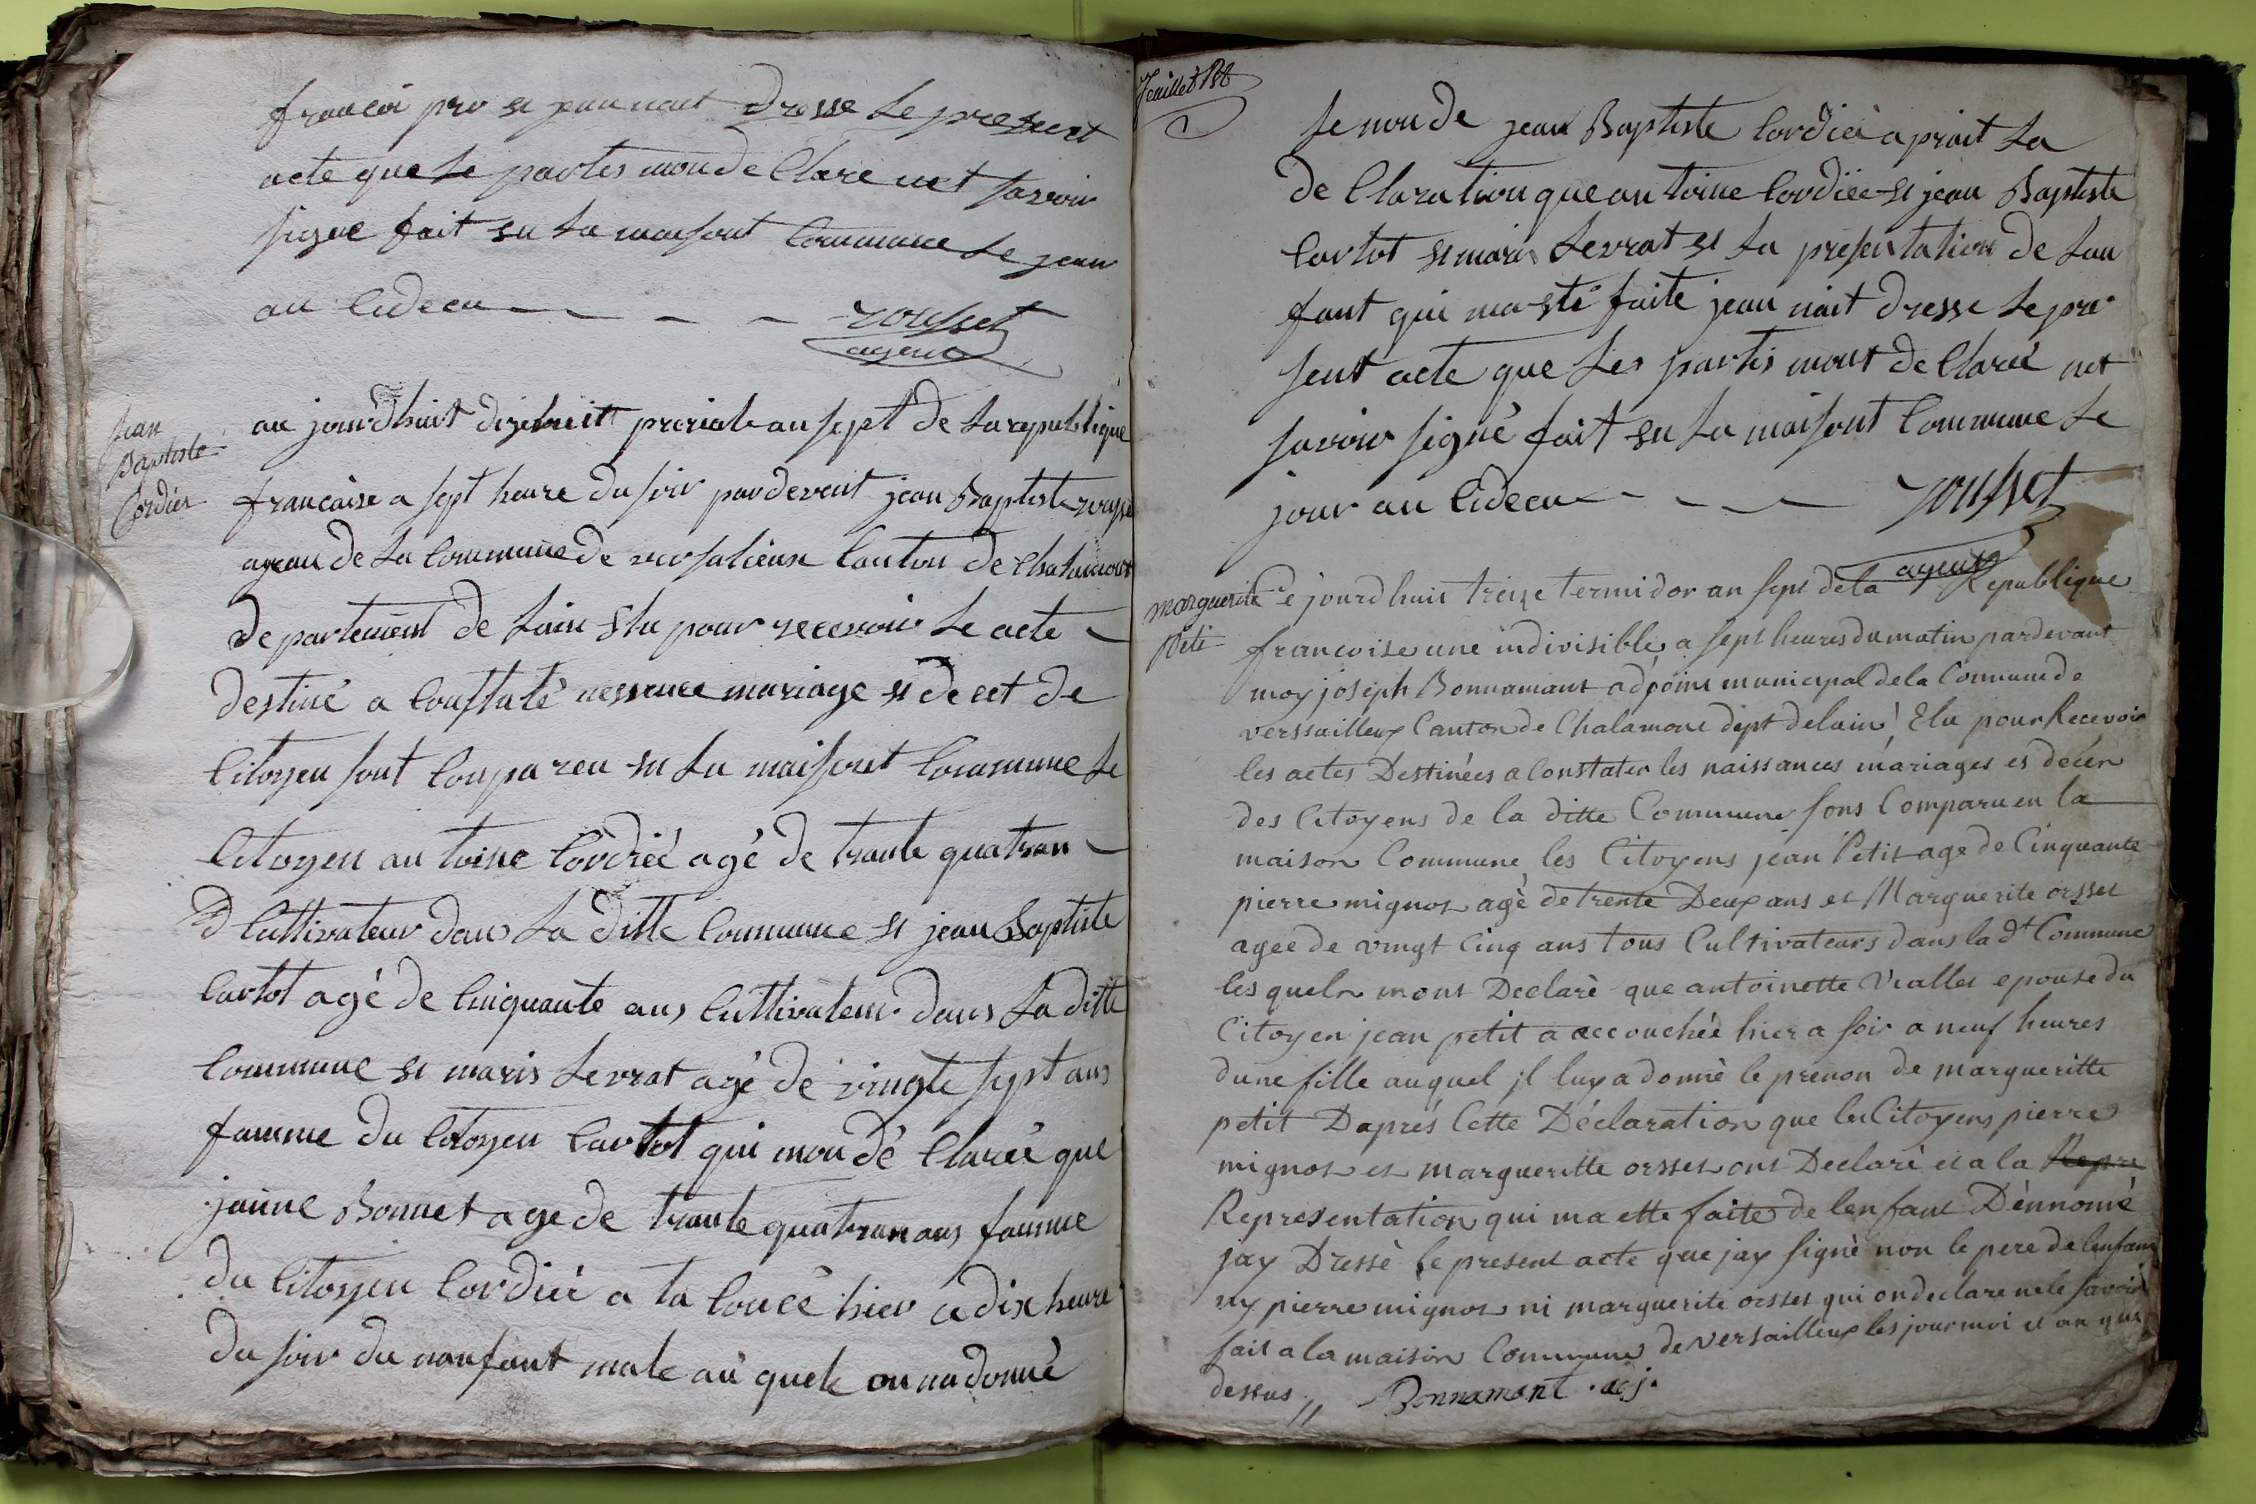 francoi pro se jean nait dresse Le present
acte que Le partis mon de Clare net savoir
signe fait en La maisont Commune Le jour
au Cideca
rousset
agent
jean
Baptiste
Cordier
au jourdhuit dizehuitt prerial an sept de La republique
francaise a sept heure du soir pardevent jean Baptiste
agean de La Commune de Canton de Chalamont
departement de Lain Elu pour recevoir Le acte
destiné a Constaté nessence mariage et decet de
Citoyen sont Conpareu en La maisont Commune Le
Citoyen antoine Cordiéé agé de trante quatran
d Cultivateur dans La ditte Commune et jean Baptiste
Cartot agé de Cinquante ans Cultivateur dans La ditte
Commune et maris Levrat agé de vingte sept ans
famme du Citoyen Cartot qui mon dé Clareé que
janne Bonnet age de trante quatran ans famme
du Citoyen Cordieé a ta Couce hier a dix heure
du soir du nanfant male au quele on na donné
feuillet
Le non de jean Baptiste Cordieé aprait La
de Claration que antoine Cordiée et jean Baptiste
Cartot et maris Levrat et La presentation de Lan
fant qui ma eté faite jeau nait dresse Le pre
sent acte que Les partis mont de Clareé net
savoir signé fait en La maisont Commune Le
jour au Cideca
rousset
agent
marguerite
Peti
Ce jourdhuit treize termidor an sept de la Republique
francoise une indivisible, a sept heures du matin pardevant
moy joseph Bonnamant adpoint municipal de la Commune de
verssailleux Canton de Chalamont dept delain, Elu pour Recevoir
les actes Destinées a Constater les naissances mariages et décèr
des Citoyens de la ditte Commune sont Comparu en la
maison Commune les Citoyens jean Petit age de Cinquante
pierre mignot agé de trente Deux ans et Marguerite orsset
agée de vingt Cinq ans tous Cultivateurs dans la dt Commune
les quels mont Declaré que antoinette Viallet epouse du
Citoyen jean petit a accouchée hier a soir a neuf heures
dune fille auquel jl luy a donné le prenon de margueritte
petit Daprés Cette Déclaration que les Citoyens pierre
mignot et margueritte orsset ont Declaré et a la Repre
Representation qui ma ette faite de lenfant Dénnomé
jay Dressé le present acte que jay signé non le pere de lenfant
ny pierre mignot ni marguerite orsset qui on declare nele savoir
fait a la maison Commune de versailleux les jour moi et an que
dessus // Bonnamant . adj.